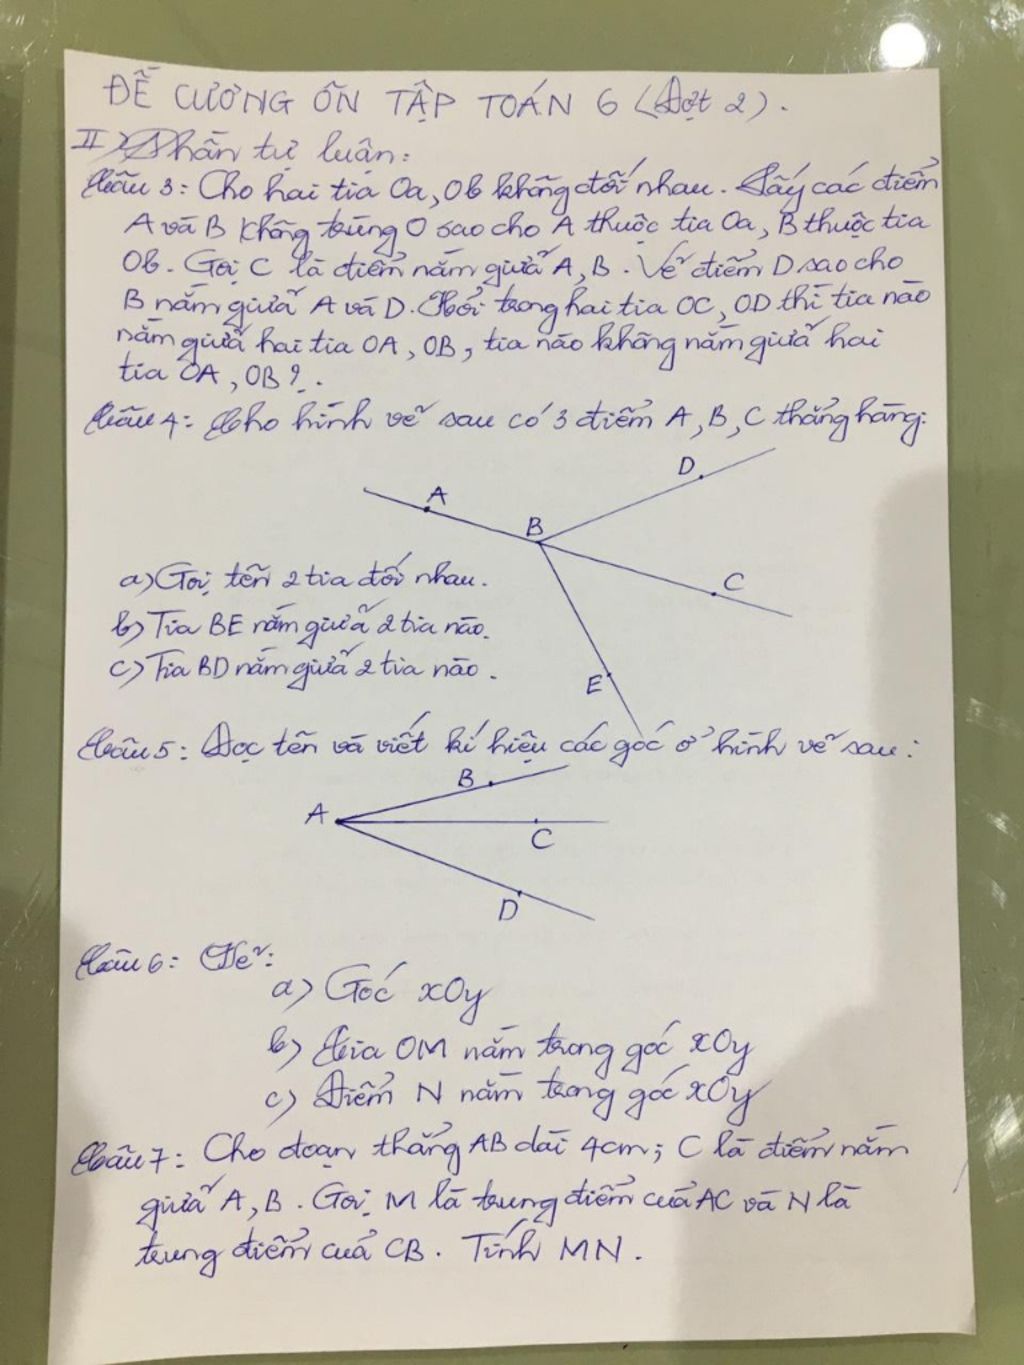 ĐỀ CƯƠNG ÔN TẬP TOÁN 6 (Đợt 2).
II) Phần tự luận:
Câu 3: Cho hai tia Oa, Ob không đối nhau. Lấy các điểm
A và B không trùng O sao cho A thuộc tia Oa, B thuộc tia
Ob. Gọi C là điểm nằm giữa A, B. Vẽ điểm D sao cho
B nằm giữa A và D. Hỏi trong hai tia OC, OD thì tia nào
nằm giữa hai tia OA, OB, tia nào không nằm giữa hai
tia OA, OB?.
Câu 4: Cho hình vẽ sau có 3 điểm A, B, C thẳng hàng:
D
A
B
C
a) Gọi tên 2 tia đối nhau.
b) Tia BE nằm giữa 2 tia nào.
c) Tia BD nằm giữa 2 tia nào.
E
Câu 5: Đọc tên và viết kí hiệu các góc ở hình vẽ sau:
B
A
C
D
Câu 6: Vẽ:
a) Góc xOy
b) Tia OM nằm trong góc xOy
c) Điểm N nằm trong góc xOy
Câu 7: Cho đoạn thẳng AB dài 4cm; C là điểm nằm
giữa A, B. Gọi M là trung điểm của AC và N là
trung điểm của CB. Tính MN.